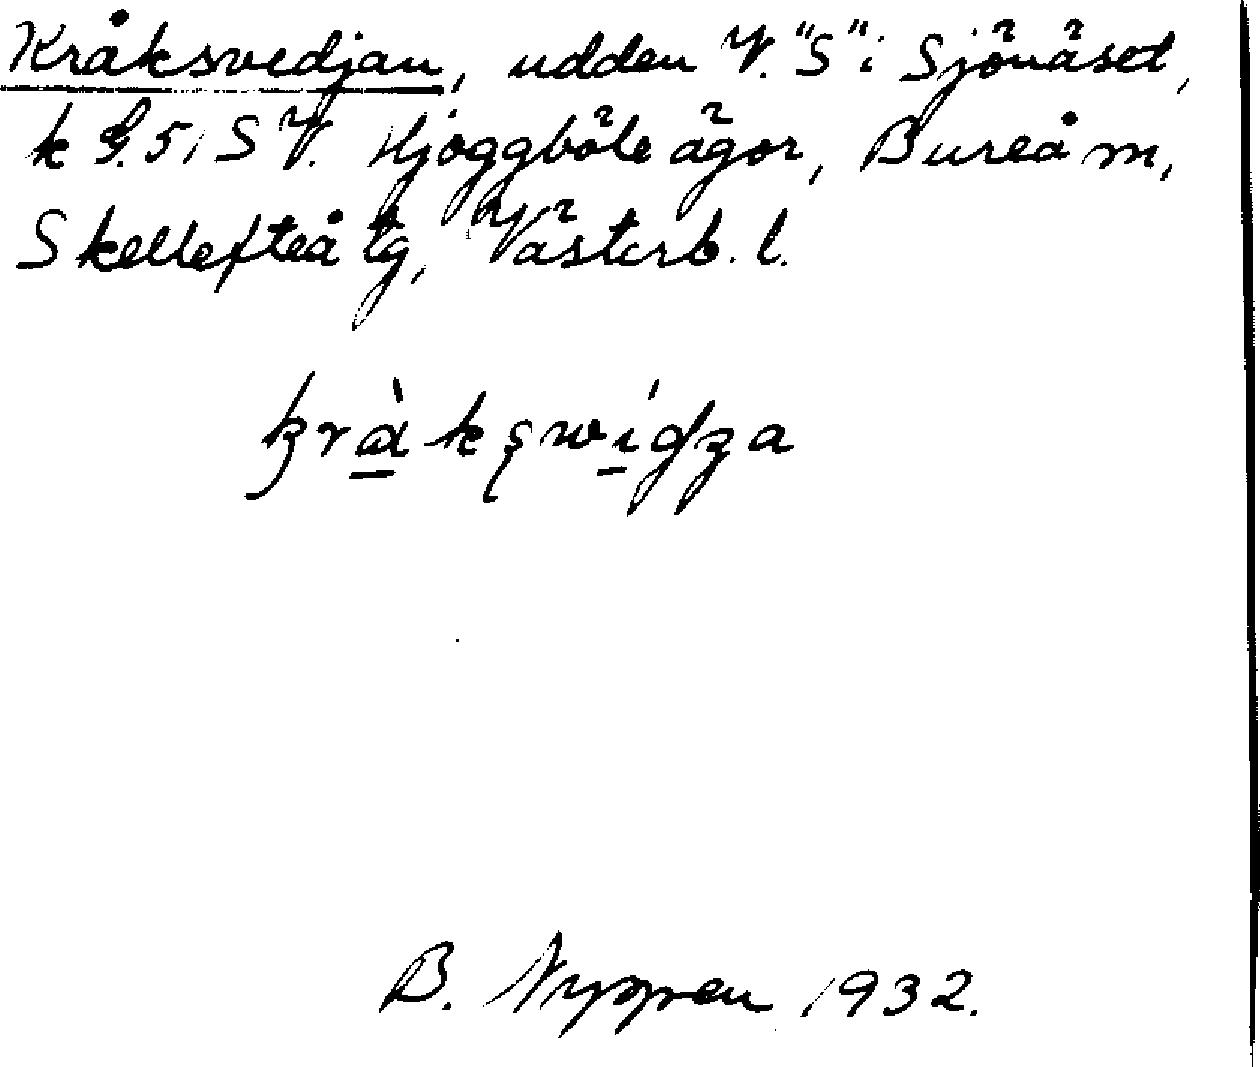 Kråksvedjan, udden V. "S" i Sjönäset,
k G. 51 SV. Hjoggböle ägor, Bureå m,
Skellefteå tg, Västerb. l.
krà̲kswí̲dʒa
B. Nyppen 1932.